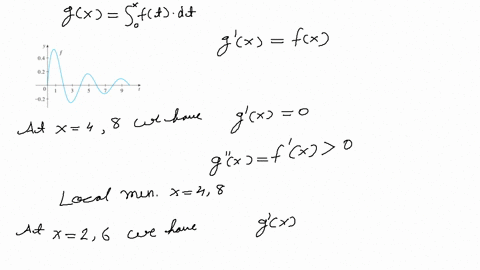 g(x) = ∫₀ˣ f(t)·dt
g'(x) = f(x)
y
f
0.4
0.2
0 1 3 5 7 9 t
-0.2
At x=4,8 we have g'(x) = 0
g"(x) = f'(x) > 0
Local min. x=4,8
At x=2,6 we have g'(x)